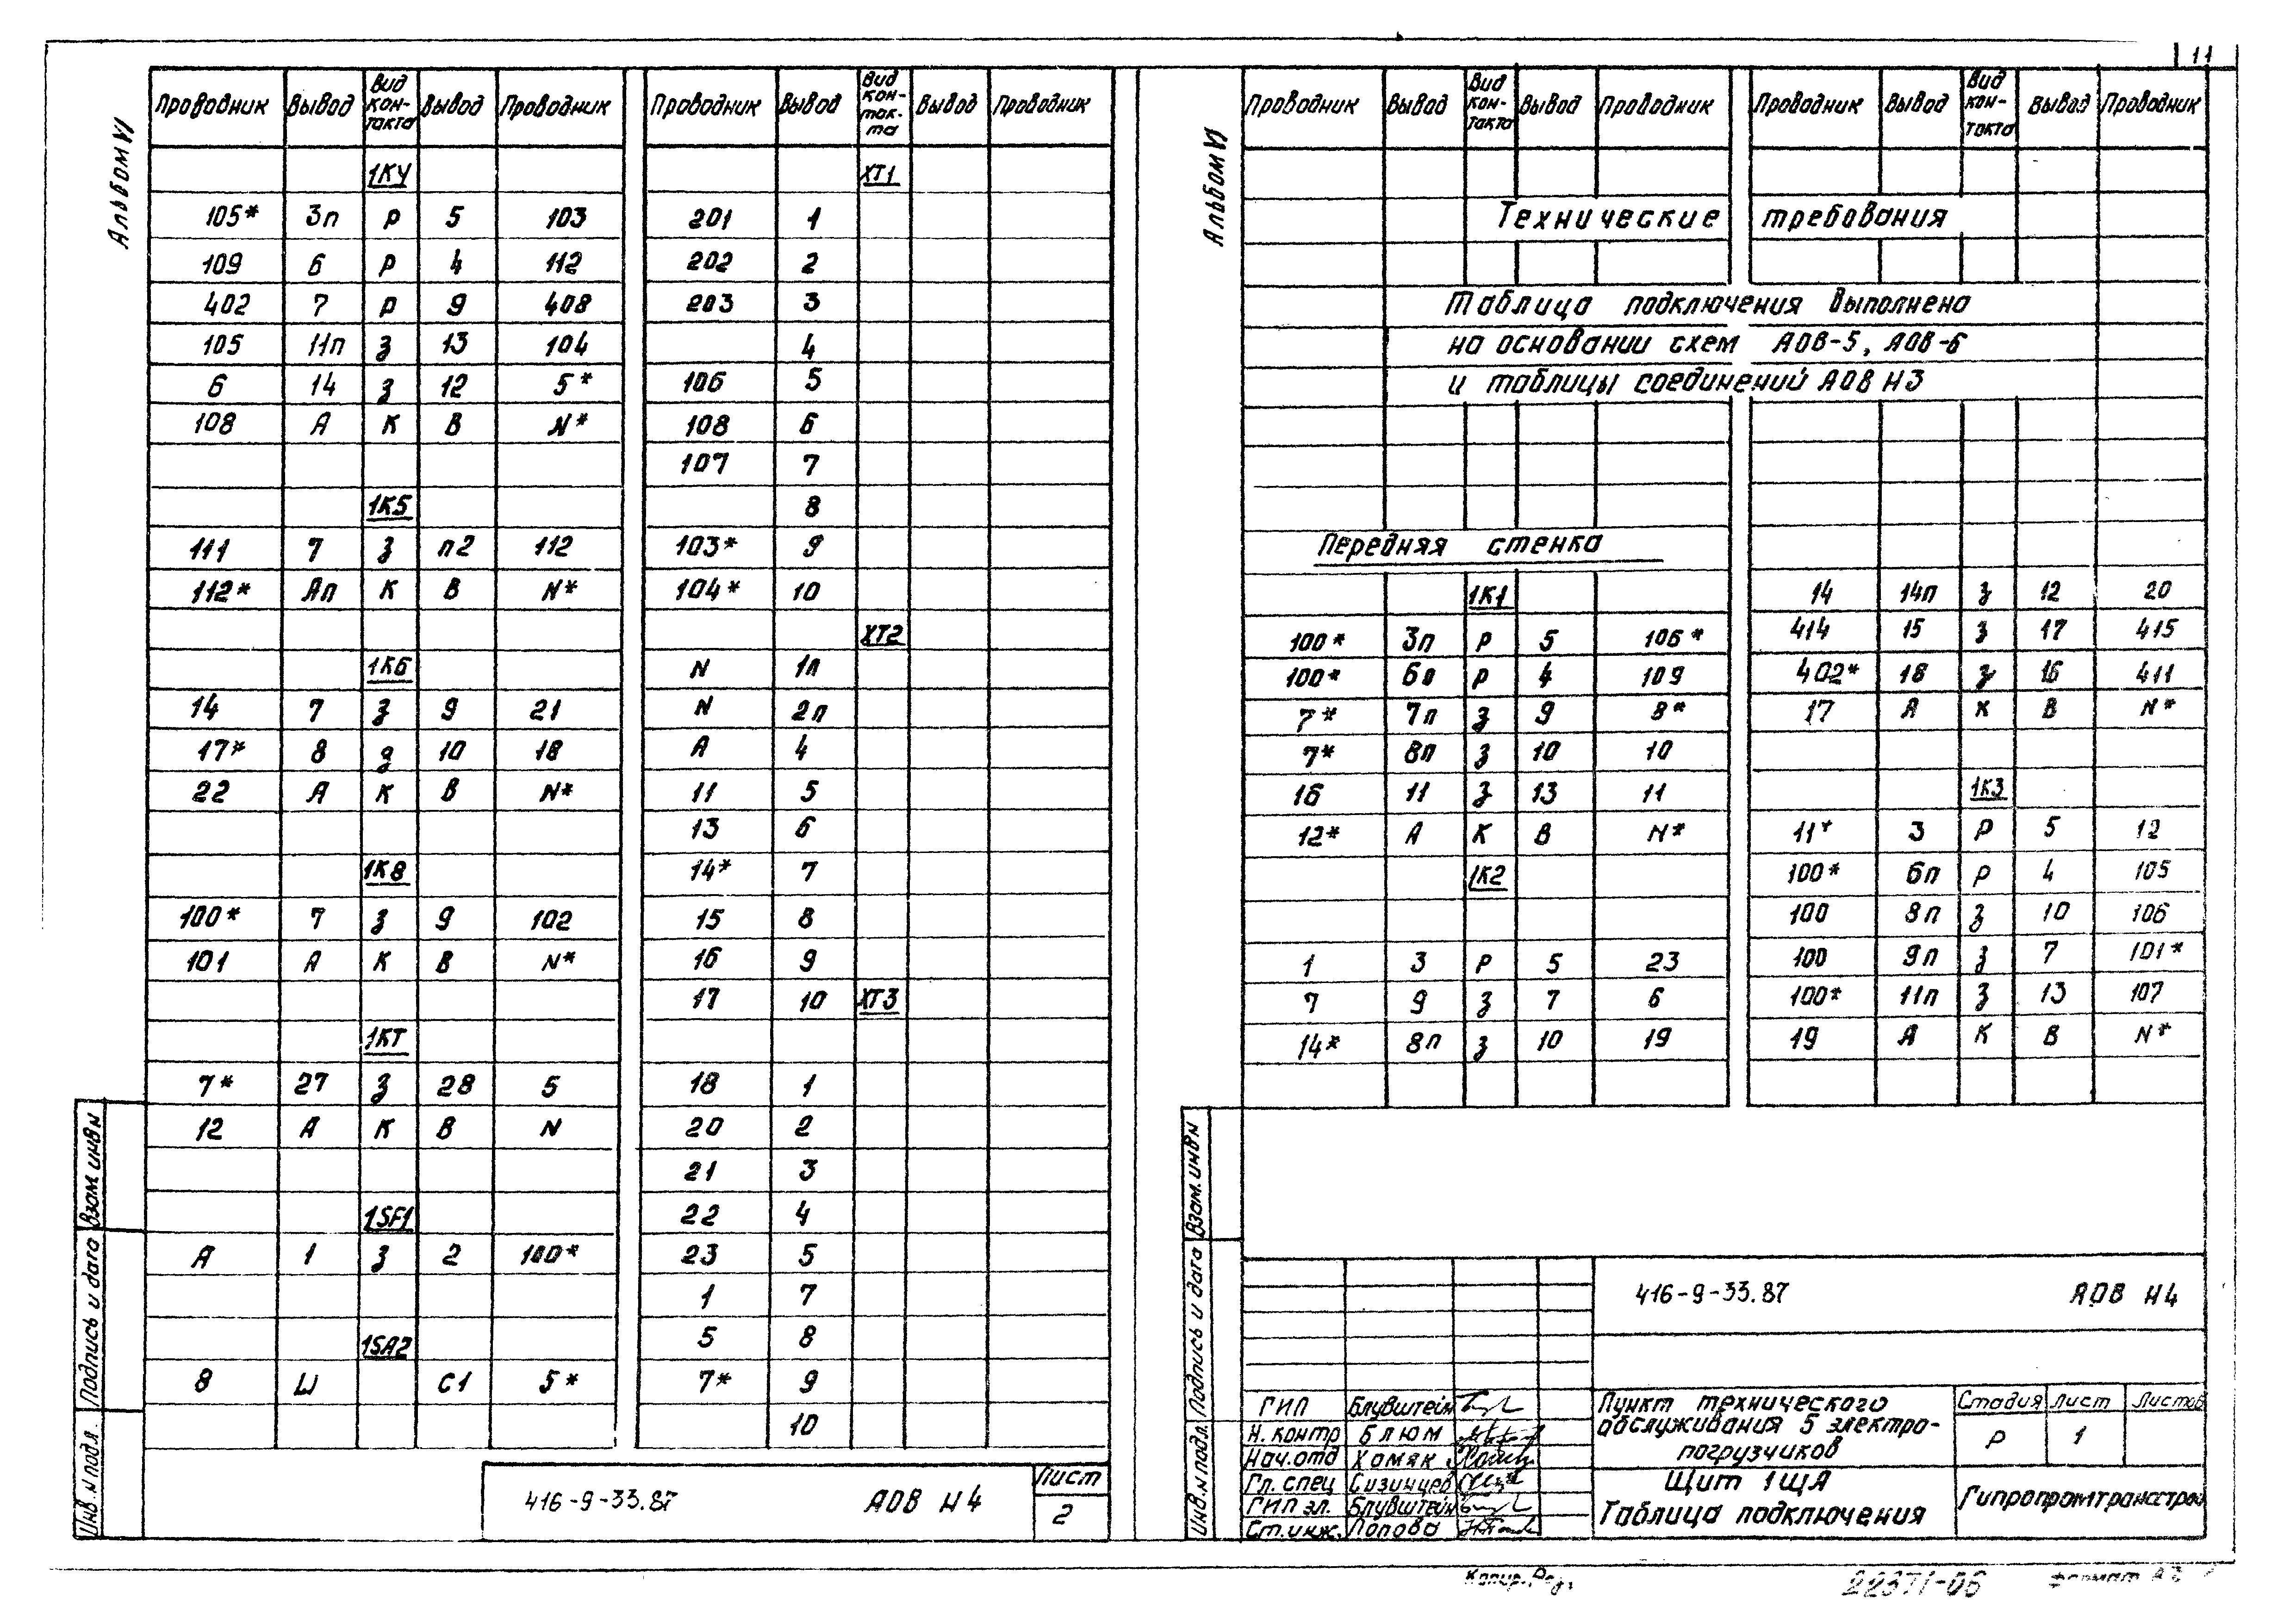 11
Альбом VI
Проводник Вывод Вид кон-такта Вывод Проводник
1КУ
105* 3п Р 5 103
109 6 Р 4 112
402 7 Р 9 408
105 11п З 13 104
6 14 З 12 5*
108 А К В N*
1К5
111 7 З п2 112
112* Ап К В N*
1К6
14 7 З 9 21
17* 8 10 18
22 А К В N*
1К8
100* 7 З 9 102
101 А К В N*
1КТ
7* 27 З 28 5
12 А К В N
1SF1
А 1 З 2 100*
1SA2
8 Ш С1 5*
Проводник Вывод Вид кон-так-та Вывод Проводник
ХТ1
201 1
202 2
203 3
4
106 5
108 6
107 7
8
103* 9
104* 10
ХТ2
N 1п
N 2п
А 4
11 5
13 6
14* 7
15 8
16 9
17 10 ХТ3
18 1
20 2
21 3
22 4
23 5
1 7
5 8
7* 9
10
Взам. инв N
Подпись и дата
Инв. N подл.
416-9-33.87 АОВ Н4
Лист
2
Альбом VI
Проводник Вывод Вид кон-такта Вывод Проводник
Проводник Вывод Вид кон-такта Вывод Проводник
Технические требования
Таблица подключения выполнена
на основании схем АОВ-5, АОВ-6
и таблицы соединений АОВ Н3
Передняя стенка
1К1
100* 3п Р 5 106*
100* 6п Р 4 109
7* 7п З 9 8*
7* 8п З 10 10
16 11 З 13 11
12* А К В N*
1К2
1 3 Р 5 23
7 9 З 7 6
14* 8п З 10 19
14 14п З 12 20
414 15 З 17 415
402* 18 З 16 411
17 А К В N*
1К3
11* 3 Р 5 12
100* 6п Р 4 105
100 8п З 10 106
100 9п З 7 101*
100* 11п З 13 107
19 А К В N*
Взам. инв N
Подпись и дата
Инв. N подл.
416-9-33.87 АОВ Н4
ГИП Блувштейн
Н. контр Блюм
Нач. отд Хомяк
Гл. спец Сизинцев
ГИП эл. Блувштейн
Ст. инж. Попова
Пункт технического
обслуживания 5 электро-
погрузчиков
Стадия Лист Листов
Р 1
Щит 1ЩА
Таблица подключения
Гипропромтрансстрой
Копир.
22371-06
формат А3